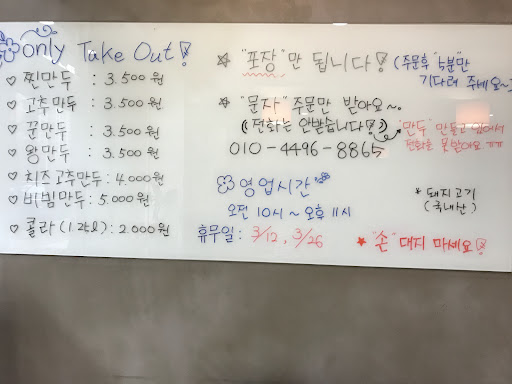 only Take Out!
♡ 찐만두 : 3.500원
♡ 고추만두 : 3.500원
♡ 군만두 : 3.500원
♡ 왕만두 : 3.500원
♡ 치즈고추만두 : 4.000원
♡ 비빔만두 : 5.000원
♡ 콜라 (1.2tl) : 2.000원
☆ "포장"만 됩니다! (주문후 "5분"만
기다려 주세요~)
☆ "문자" 주문만 받아요~.
(전화는 안받습니다!)
"만두" 만들고 있어서
전화를 못받아요 ㅠㅠ
010-4496-8865
영업시간
오전 10시 ~ 오후 11시
휴무일 : 3/12, 3/26
* 돼지고기
(국내산)
★ "손" 대지 마세요!